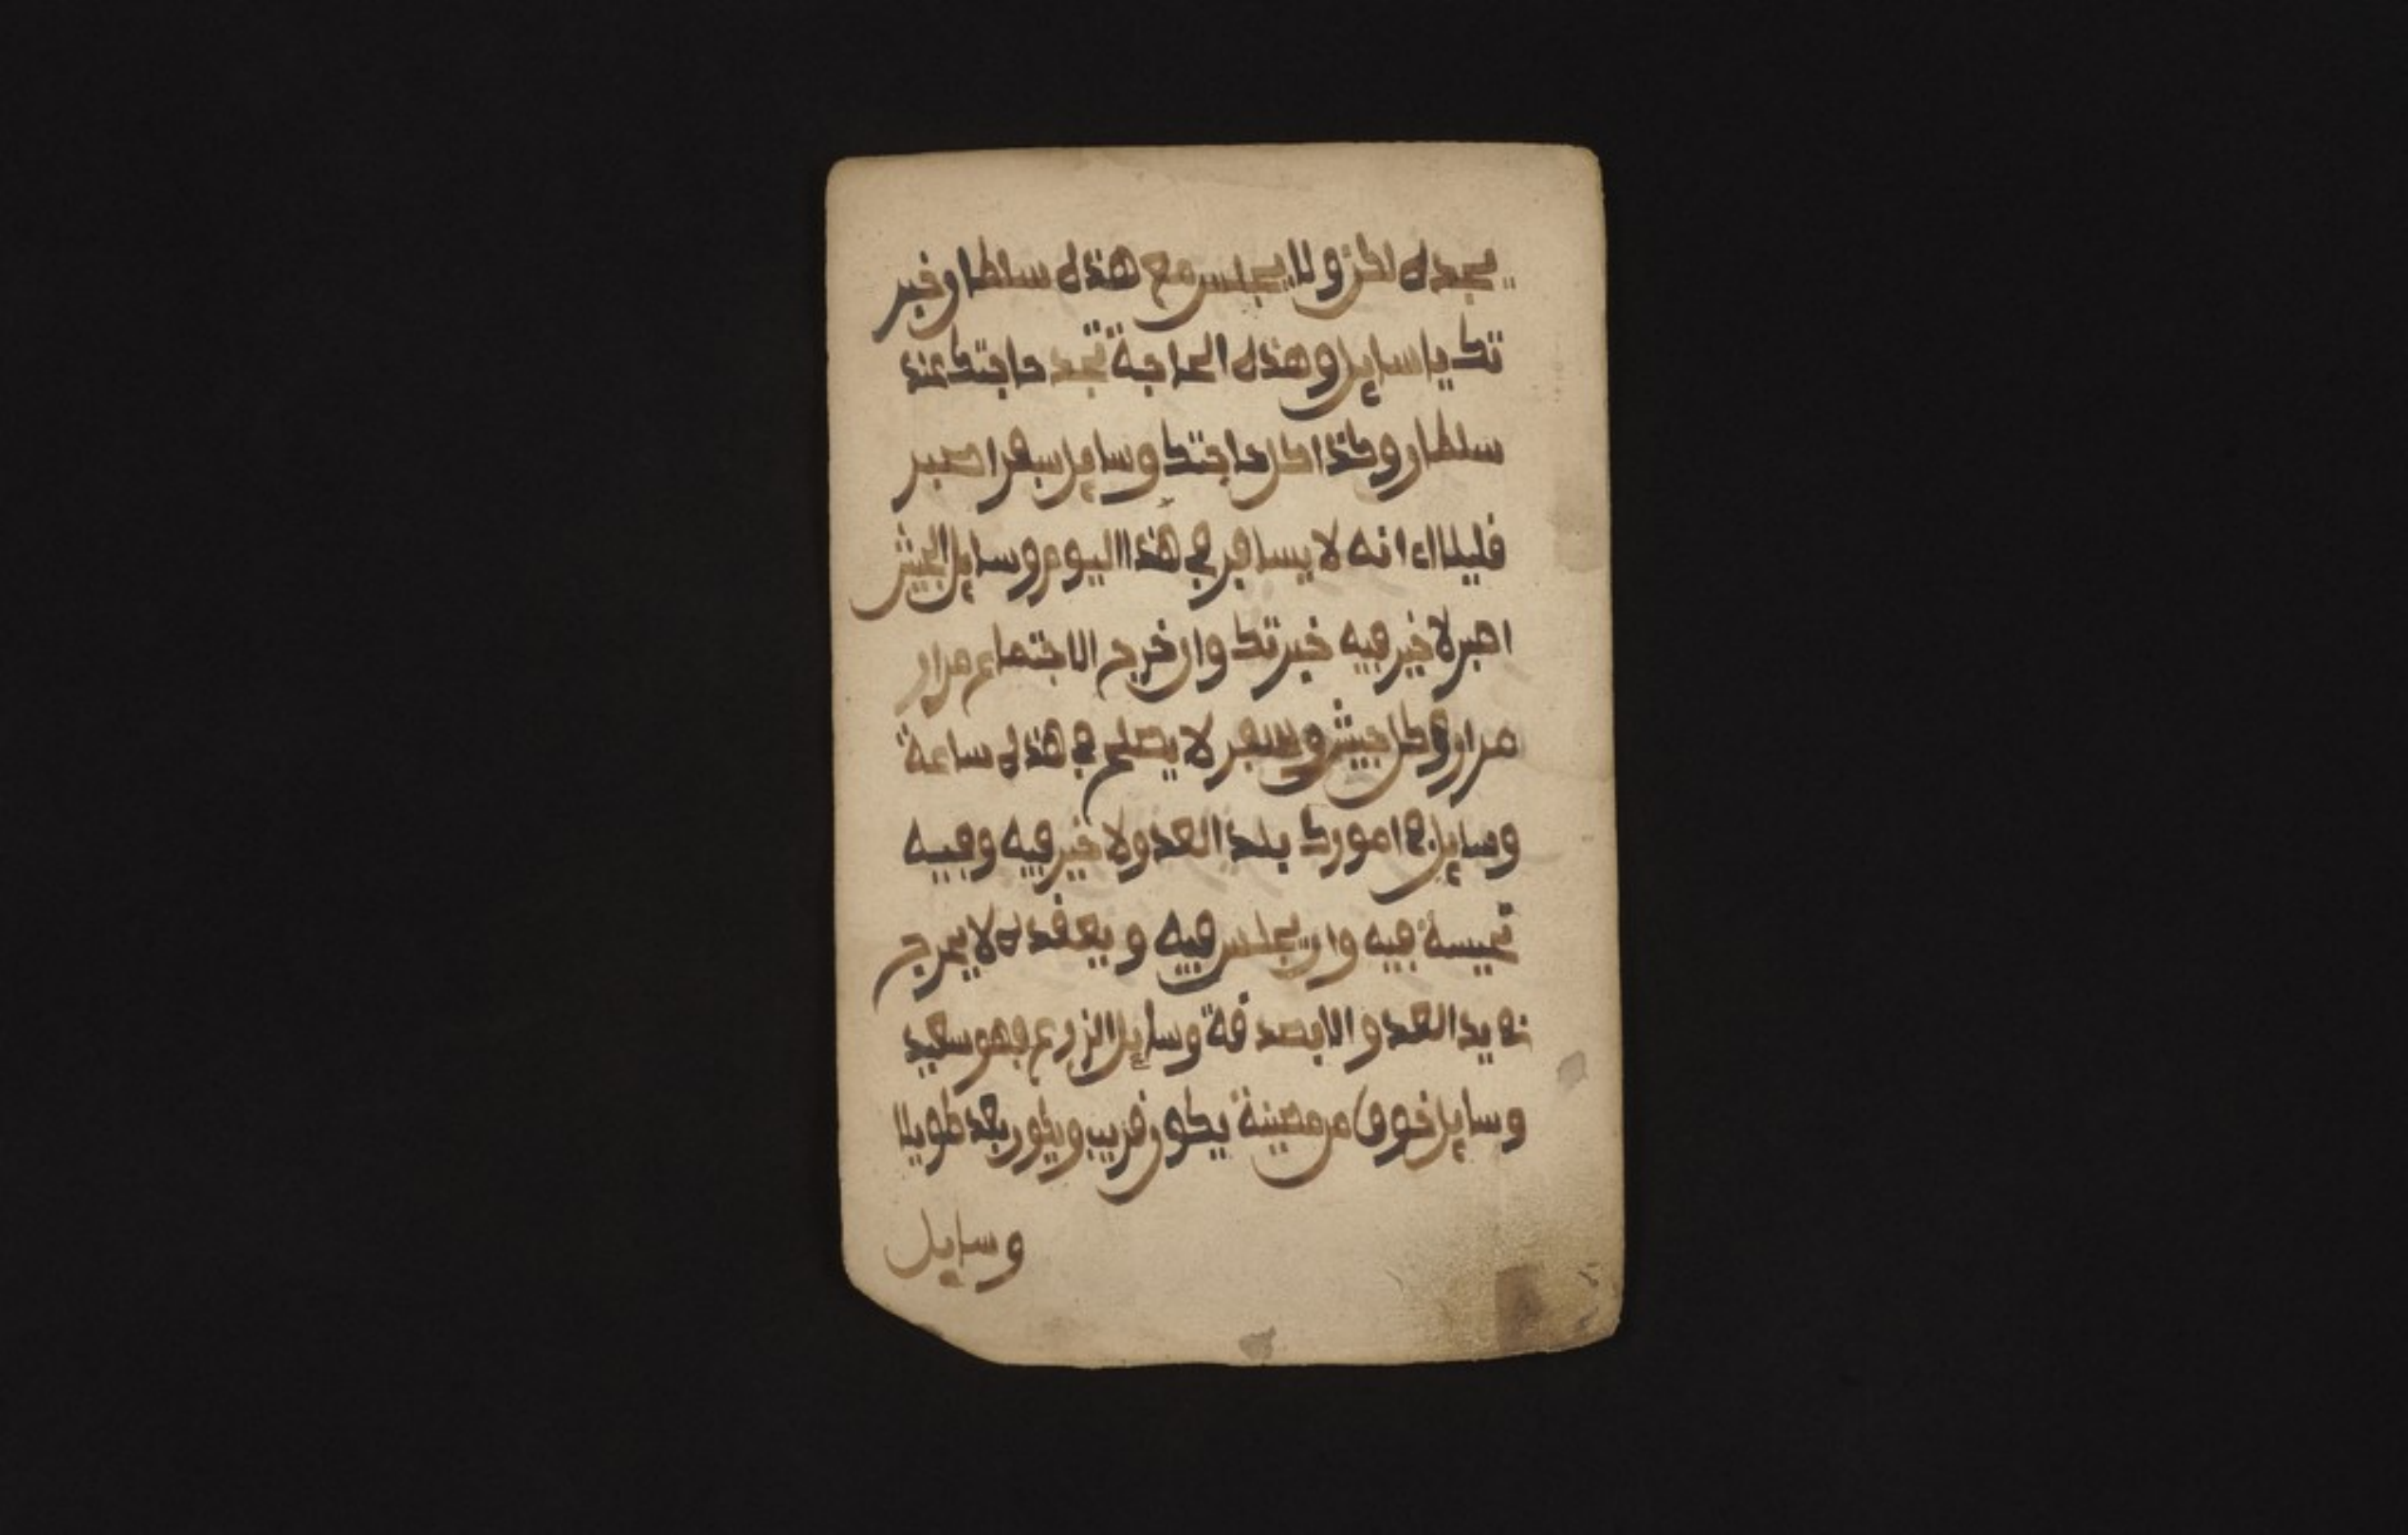 يجده لكن ولا يجلس مع هذه سلطان وخبر
تك يا سايل وهذه الحاجة تجد حاجتك عند
سلطان وكذا كل حاجتك وسايل سفر اصبر
قليلا انه لا يسافر في هذا اليوم وسايل الجيش
اصبر لا خير فيه خبرتك وان خرج الاجتماع مرار
مرار وكل جيش وسفر لا يصلح في هذه ساعة
وسايل في امورك بلد العدو لا خير فيه وفيه
نحيسة فيه وان يجلس فيه و يعقده لا يخرج
يد العدو الا بصدقة وسايل الزرع فهو سعيد
وسايل خوف من مصيبة يكون قريب ويكون بعد طويلا
وسايل